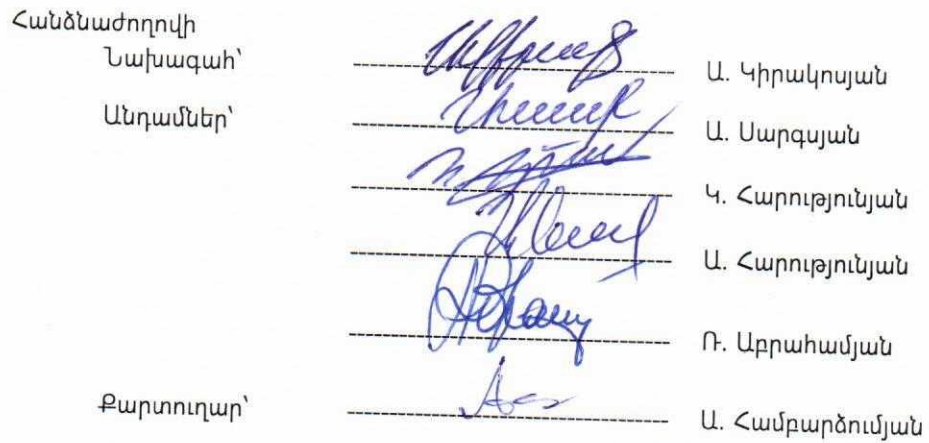 Հանձնաժողովի
Նախագահ՝ Ա. Կիրակոսյան
Անդամներ՝ Ա. Սարգսյան
Կ. Հարությունյան
Ա. Հարությունյան
Ռ. Աբրահամյան
Քարտուղար՝ Ա. Համբարձումյան